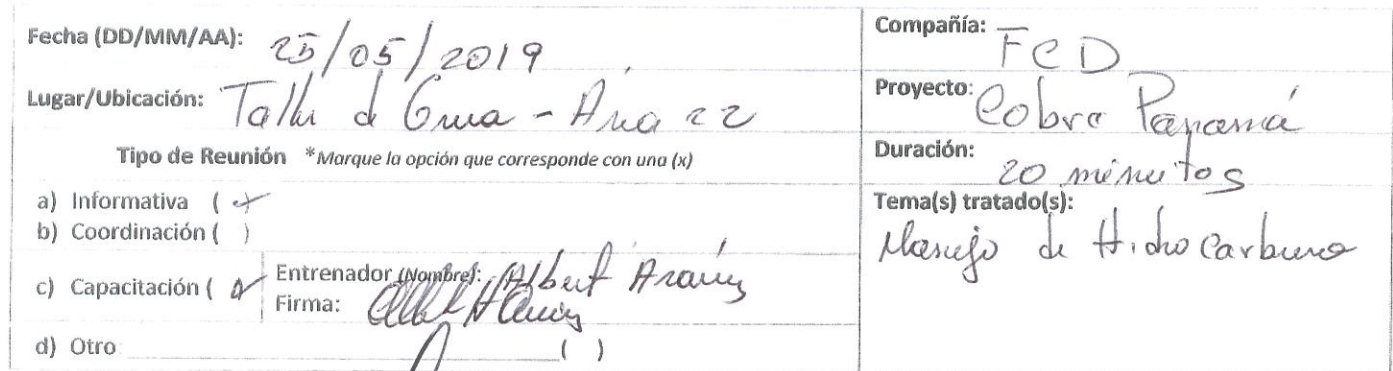 Fecha (DD/MM/AA): 25/05/2019
Lugar/Ubicación: Taller de Grua - Area 22
Tipo de Reunión *Marque la opción que corresponde con una (x)
a) Informativa (
b) Coordinación ( )
c) Capacitación (
Entrenador (Nombre): Albert Araúz
Firma:
d) Otro: ( )
Compañía: FCD
Proyecto: Cobre Panamá
Duración: 20 minutos
Tema(s) tratado(s):
Manejo de Hidrocarburo